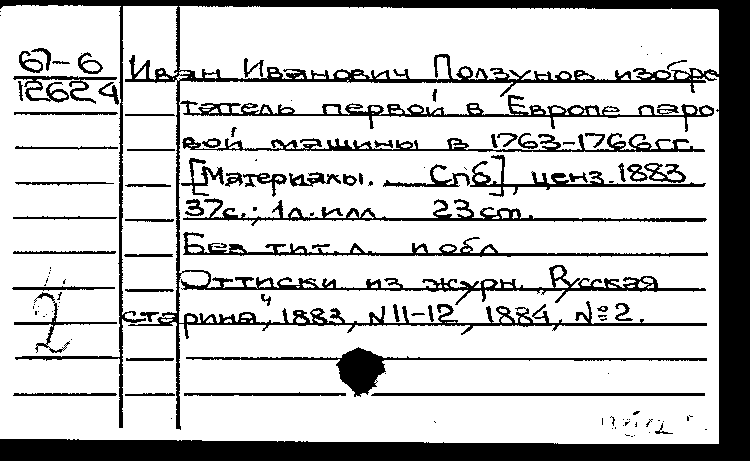 67-6
12624
Иван Иванович Ползунов изобре
татель первой в Европе паро-
вой машины в 1763-1766гг.
[Материалы. Спб.], ценз. 1883.
37с.; 1л. илл. 23 см.
Без тит. л. и обл.
Оттиски из журн. „Русская
старина“, 1883, N 11-12, 1884, №2.
2